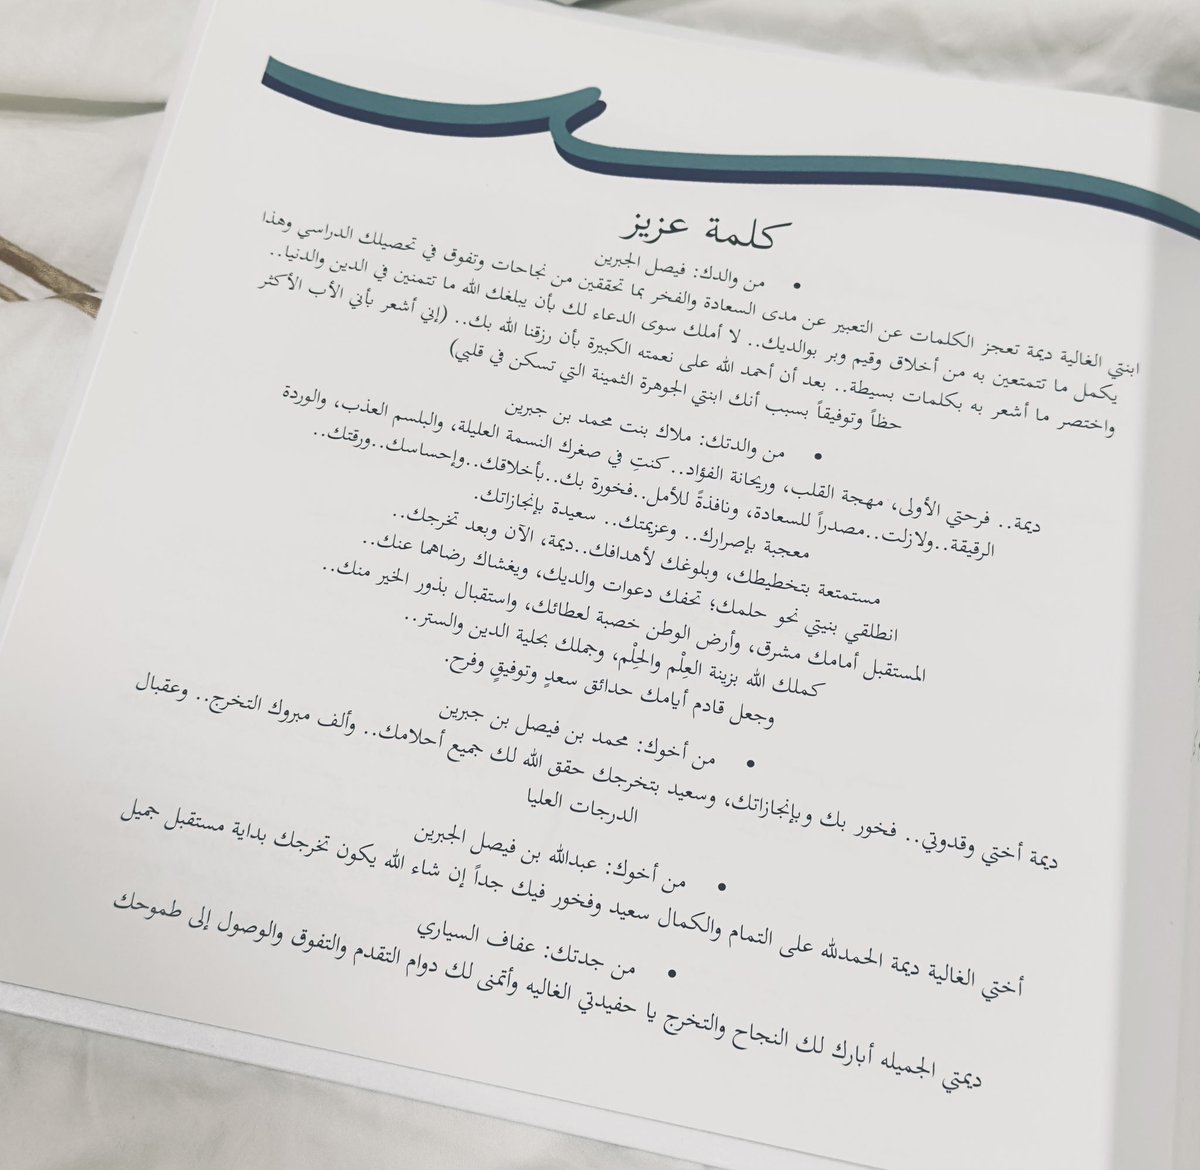 كلمة عزيز
• من والدك: فيصل الجبرين
ابنتي الغالية ديمة تعجز الكلمات عن التعبير عن مدى السعادة والفخر بما تحققين من نجاحات وتفوق في تحصيلك الدراسي وهذا
يكمل ما تتمتعين به من أخلاق وقيم وبر بوالديك.. لا أملك سوى الدعاء لك بأن يبلغك الله ما تتمنين في الدين والدنيا..
واختصر ما أشعر به بكلمات بسيطة.. بعد أن أحمد الله على نعمته الكبيرة بأن رزقنا الله بك.. (إني أشعر بأني الأب الأكثر
حظاً وتوفيقاً بسبب أنك ابنتي الجوهرة الثمينة التي تسكن في قلبي)
• من والدتك: ملاك بنت محمد بن جبرين
ديمة.. فرحتي الأولى، مهجة القلب، وريحانة الفؤاد.. كنتِ في صغرك النسمة العليلة، والبلسم العذب، والوردة
الرقيقة..ولازلت..مصدراً للسعادة، ونافذةً للأمل..فخورة بك..بأخلاقك..وإحساسك..ورقتك..
معجبة بإصرارك.. وعزيمتك.. سعيدة بإنجازاتك.
مستمتعة بتخطيطك، وبلوغك لأهدافك..ديمة، الآن وبعد تخرجك..
انطلقي بنيتي نحو حلمك؛ تحفك دعوات والديك، ويغشاك رضاهما عنك..
المستقبل أمامك مشرق، وأرض الوطن خصبة لعطائك، واستقبال بذور الخير منك..
كملك الله بزينة العِلْم والحِلْم، وجملك بحلية الدين والستر..
وجعل قادم أيامك حدائق سعدٍ وتوفيقٍ وفرح.
• من أخوك: محمد بن فيصل بن جبرين
ديمة أختي وقدوتي.. فخور بك وبإنجازاتك، وسعيد بتخرجك حقق الله لك جميع أحلامك.. وألف مبروك التخرج.. وعقبال
الدرجات العليا
• من أخوك: عبدالله بن فيصل الجبرين
أختي الغالية ديمة الحمدلله على التمام والكمال سعيد وفخور فيك جداً إن شاء الله يكون تخرجك بداية مستقبل جميل
• من جدتك: عفاف السياري
ديمتي الجميله أبارك لك النجاح والتخرج يا حفيدتي الغاليه وأتمنى لك دوام التقدم والتفوق والوصول إلى طموحك